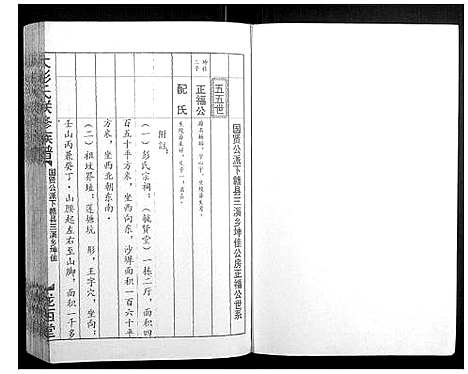 国贤公派下赣县三溪乡坤佳公房正福公世系
五五世
坤佳
正福公
配氏
附註：
（一）彭氏宗祠：（毓贤堂）一栋二厅，面积
百五十平方米，坐西向东，沙墠面积一百六十平
方米，坐西北朝东南。
（二）祖坟界址：莲塘坑 形，王字穴，坐向：
壬山丙兼癸丁·山腰起左右至山脚，面积一千多
彭氏联修族譜
国贤公派下赣县三溪乡坤佳